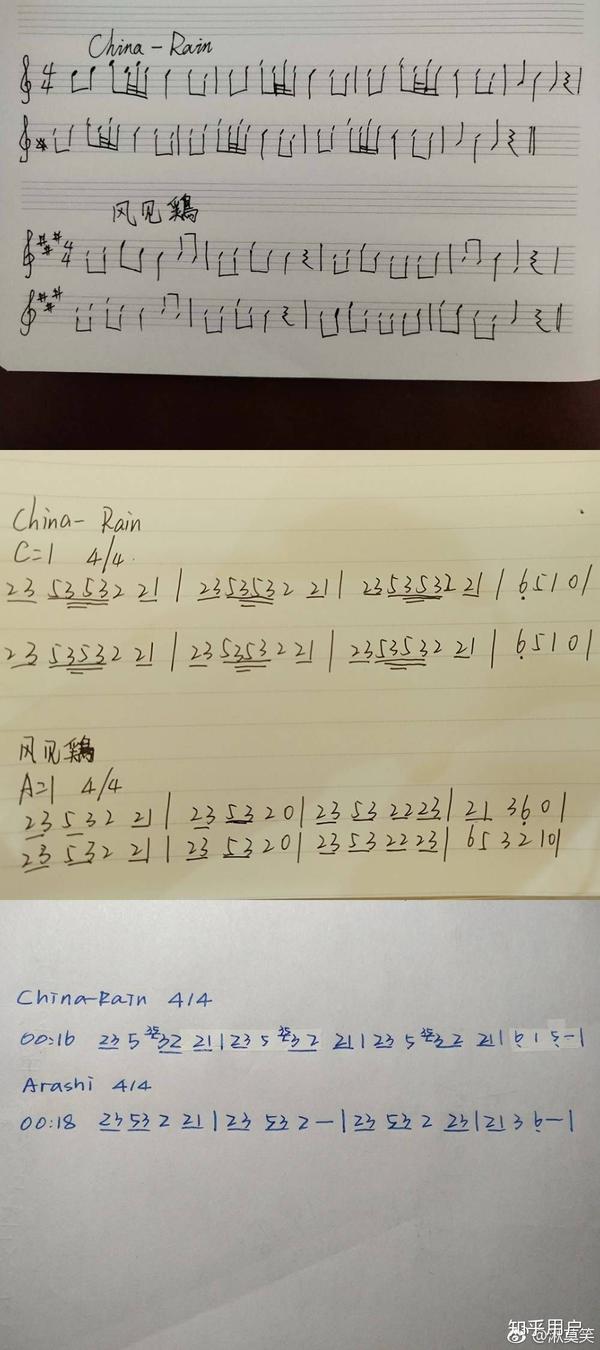 China-Rain
4/4
风见鶏
4/4
China- Rain
C=1 4/4
23 53532 21 | 23 53532 21 | 23 53532 21 | 6510 |
23 53532 21 | 23 53532 21 | 23 53532 21 | 6510 |
风见鶏
A=1 4/4
23 532 21 | 23 5320 | 23 53 2223 | 21 360 |
23 532 21 | 23 5320 | 23 53 2223 | 653210 |
China-Rain 4/4
00:16 23 5 32 21 | 23 5 32 21 | 23 5 32 21 | 6 1 5 - |
Arashi 4/4
00:18 23 53 2 21 | 23 53 2 - | 23 53 2 23 | 21 3 6 - |
知乎用户
@淑莫笑